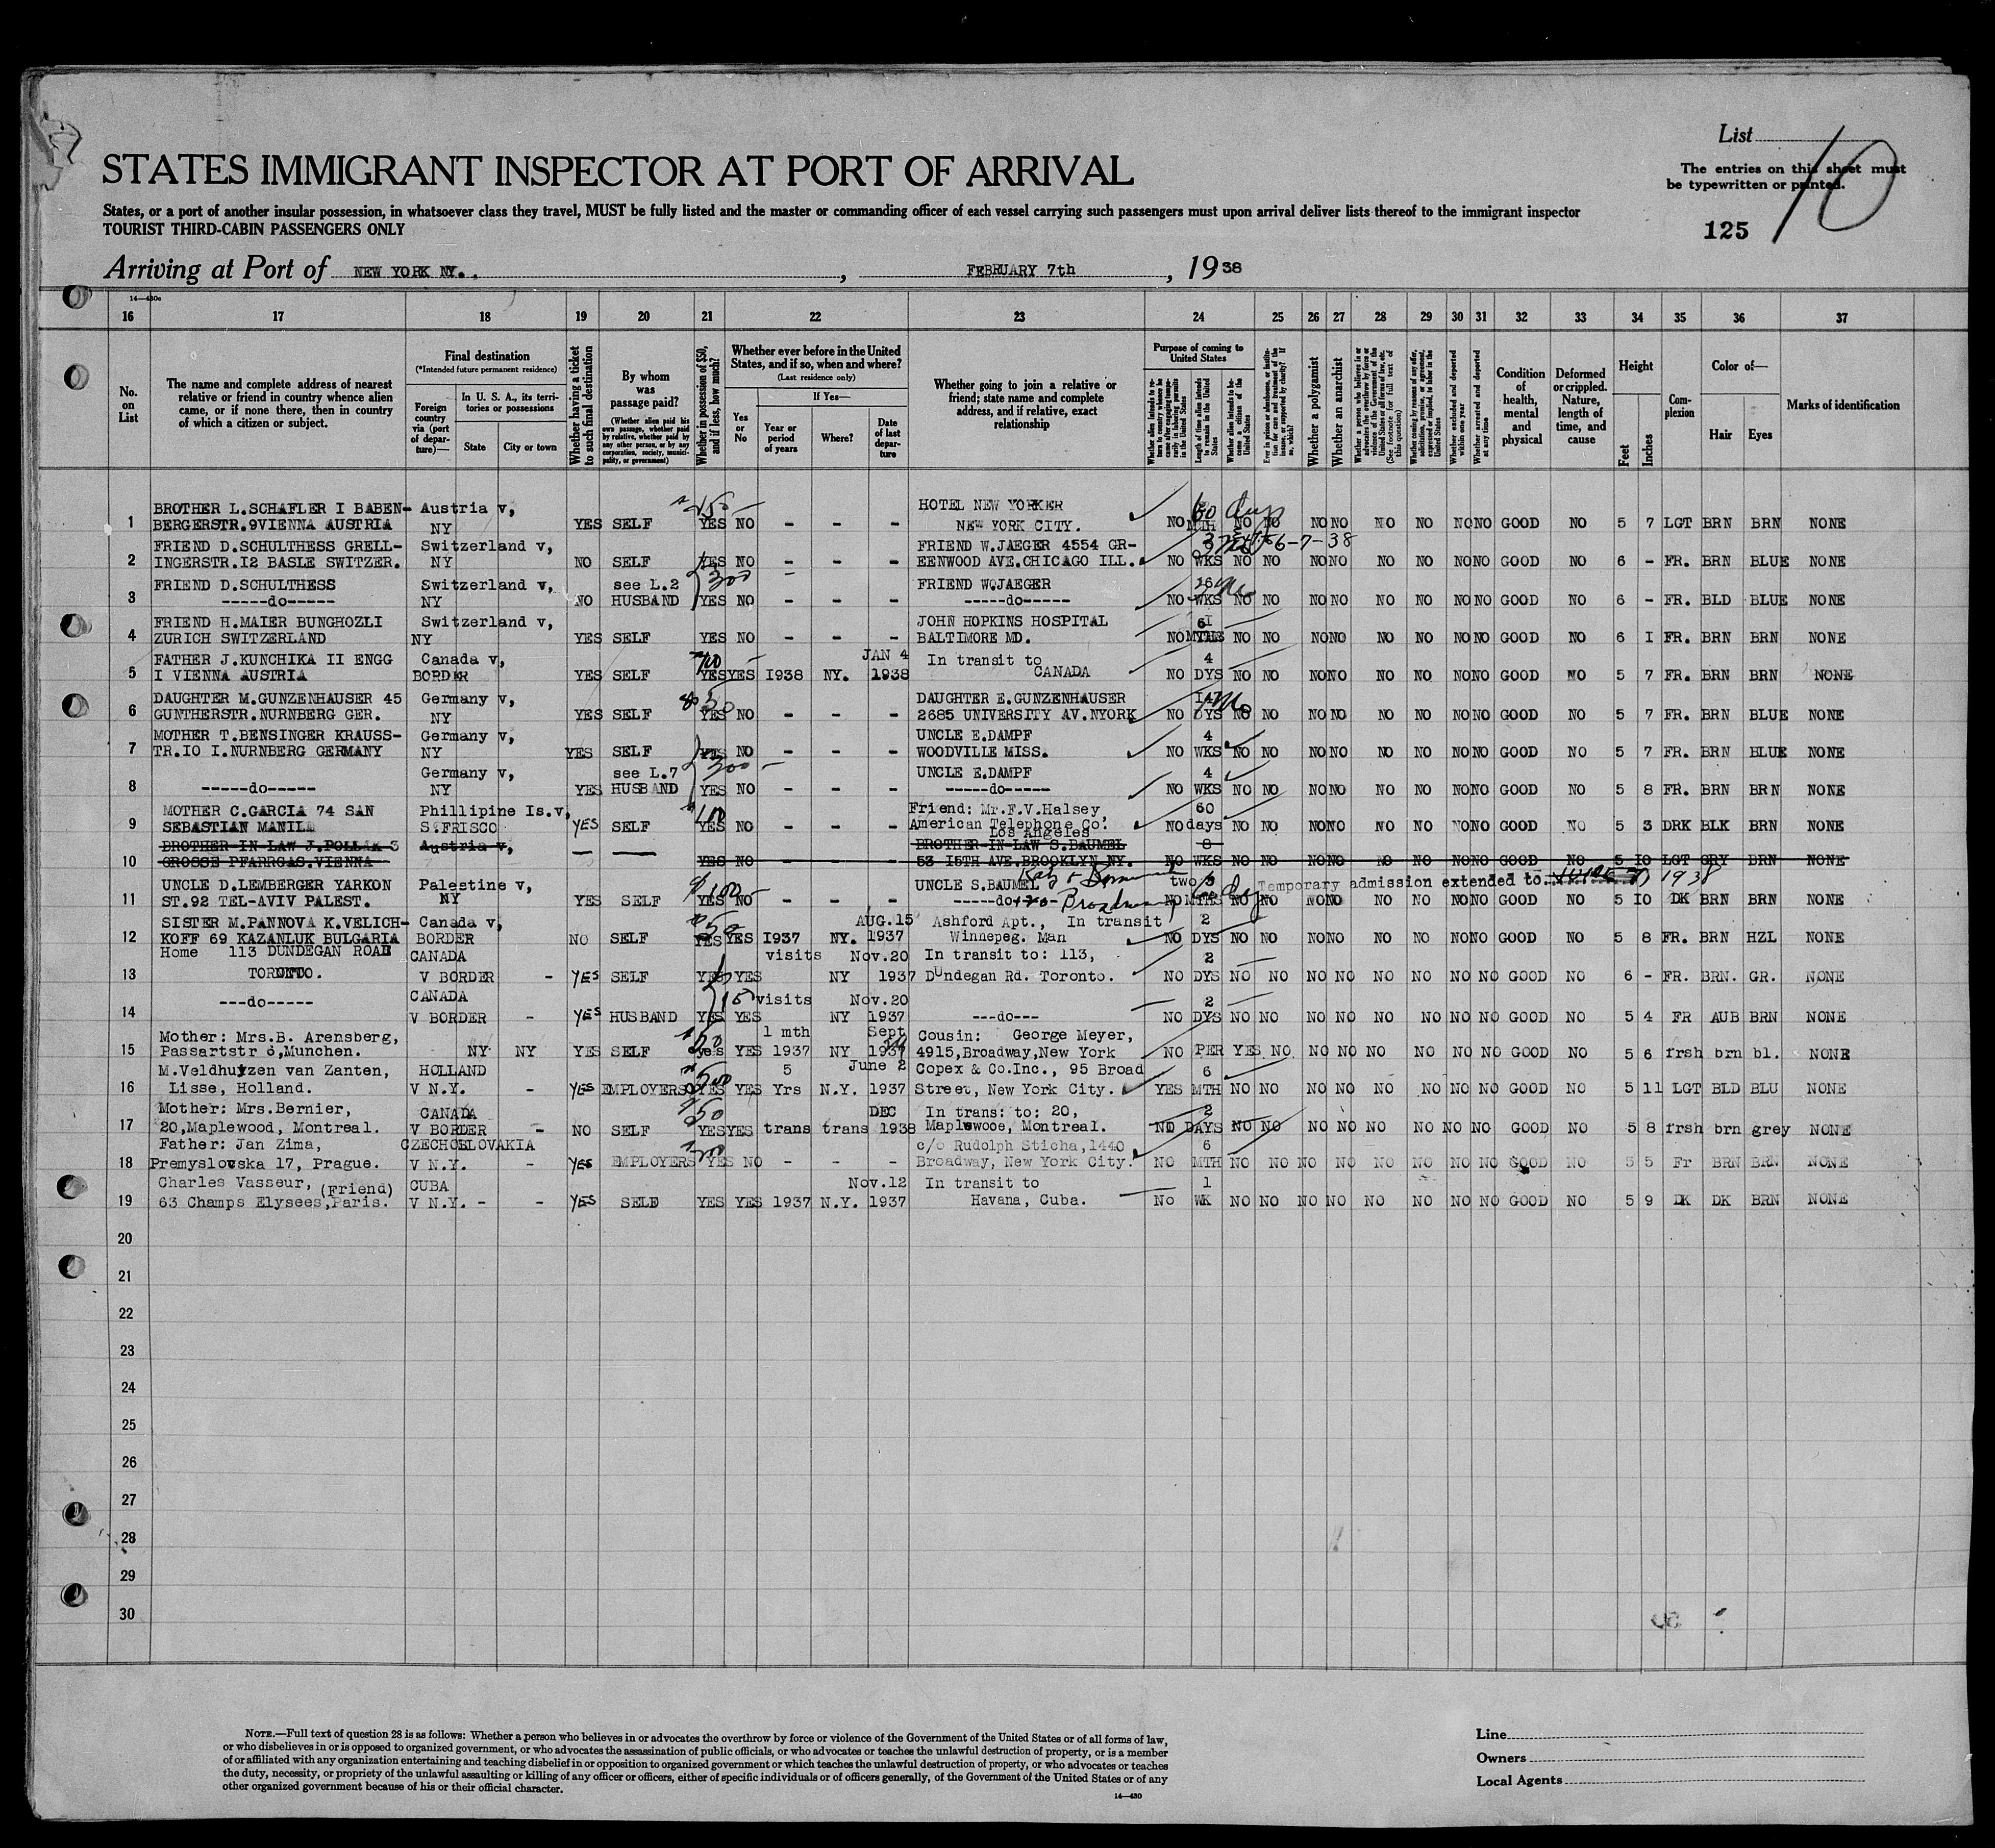 List
10
The entries on this sheet must
be typewritten or printed.
125
STATES IMMIGRANT INSPECTOR AT PORT OF ARRIVAL
States, or a port of another insular possession, in whatsoever class they travel, MUST be fully listed and the master or commanding officer of each vessel carrying such passengers must upon arrival deliver lists thereof to the immigrant inspector
TOURIST THIRD-CABIN PASSENGERS ONLY
Arriving at Port of NEW YORK NY. , FEBRUARY 7th , 1938
14—430c
16 17 18 19 20 21 22 23 24 25 26 27 28 29 30 31 32 33 34 35 36 37
No. on List
The name and complete address of nearest relative or friend in country whence alien came, or if none there, then in country of which a citizen or subject.
Final destination
(*Intended future permanent residence)
Foreign country via (port of departure)—
In U. S. A., its territories or possessions
State
City or town
Whether having a ticket to such final destination
By whom was passage paid?
(Whether alien paid his own passage, whether paid by relative, whether paid by any other person, or by any corporation, society, municipality, or government)
Whether in possession of $50, and if less, how much?
Whether ever before in the United States, and if so, when and where?
(Last residence only)
Yes or No
If Yes—
Year or period of years
Where?
Date of last departure
Whether going to join a relative or friend; state name and complete address, and if relative, exact relationship
Purpose of coming to United States
Length of time alien intends to remain in the United States
Whether alien intends to become a citizen of the United States
Whether a polygamist
Whether an anarchist
Whether excluded and deported within one year
Whether arrested and deported at any time
Condition of health, mental and physical
Deformed or crippled. Nature, length of time, and cause
Height
Feet
Inches
Complexion
Color of—
Hair
Eyes
Marks of identification
BROTHER L.SCHAFLER I BABEN- Austria v, 150 HOTEL NEW YORKER 60 days
1 BERGERSTR.9VIENNA AUSTRIA NY YES SELF YES NO - - - NEW YORK CITY. NO MTH NO NO NO NO NO NO NO NO GOOD NO 5 7 LGT BRN BRN NONE
FRIEND D.SCHULTHESS GRELL- Switzerland v, FRIEND W.JAEGER 4554 GR- 6-7-38
2 INGERSTR.I2 BASLE SWITZER. NY NO SELF YES NO - - - EENWOOD AVE.CHICAGO ILL. NO WKS NO NO NO NO NO NO NO NO GOOD NO 6 - FR. BRN BLUE NONE
FRIEND D.SCHULTHESS Switzerland v, see L.2 300 FRIEND WQJAEGER
3 -----do----- NY NO HUSBAND YES NO - - - -----do----- NO WKS NO NO NO NO NO NO NO NO GOOD NO 6 - FR. BLD BLUE NONE
FRIEND H.MAIER BUNGHOZLI Switzerland v, JOHN HOPKINS HOSPITAL
4 ZURICH SWITZERLAND NY YES SELF YES NO - - - BALTIMORE MD. NO MTHS NO NO NO NO NO NO NO NO GOOD NO 6 I FR. BRN BRN NONE
FATHER J.KUNCHIKA II ENGG Canada v, JAN 4 In transit to 4
5 I VIENNA AUSTRIA BORDER YES SELF YES YES I938 NY. 1938 CANADA NO DYS NO NO NO NO NO NO NO NO GOOD NO 5 7 FR. BRN BRN NONE
DAUGHTER M.GUNZENHAUSER 45 Germany v, DAUGHTER E.GUNZENHAUSER
6 GUNTHERSTR.NURNBERG GER. NY YES SELF YES NO - - - 2685 UNIVERSITY AV.NYORK NO DYS NO NO NO NO NO NO NO NO GOOD NO 5 7 FR. BRN BLUE NONE
MOTHER T.BENSINGER KRAUSS- Germany v, UNCLE E.DAMPF 4
7 TR.IO I.NURNBERG GERMANY NY YES SELF YES NO - - - WOODVILLE MISS. NO WKS NO NO NO NO NO NO NO NO GOOD NO 5 7 FR. BRN BLUE NONE
Germany v, see L.7 300 UNCLE E.DAMPF 4
8 -----do----- NY YES HUSBAND YES NO - - - -----do----- NO WKS NO NO NO NO NO NO NO NO GOOD NO 5 8 FR. BRN BRN NONE
MOTHER C.GARCIA 74 SAN Phillipine Is.v, Friend: Mr.F.V.Halsey, 60
9 SEBASTIAN MANILA S.FRISCO YES SELF YES NO - - - American Telephone Co. NO days NO NO NO NO NO NO NO NO GOOD NO 5 3 DRK BLK BRN NONE
Los Angeles
BROTHER-IN-LAW J.POLLAK 3 Austria v, BROTHER-IN-LAW S.BAUMEL 8
10 GROSSE PFARRGAS.VIENNA YES NO - - - 53 I5TH AVE.BROOKLYN NY. NO WKS NO NO NO NO NO NO NO NO GOOD NO 5 IO LGT GRY BRN NONE
UNCLE D.LEMBERGER YARKON Palestine v, 100 UNCLE S.BAUMEL two Temporary admission extended to 1938
11 ST.92 TEL-AVIV PALEST. NY YES SELF YES NO - - - -----do- Broadway NO MTHS NO NO NO NO NO NO NO NO GOOD NO 5 IO DK BRN BRN NONE
SISTER M.PANNOVA K.VELICH- Canada v, 50 AUG.15 Ashford Apt., In transit 2
12 KOFF 69 KAZANLUK BULGARIA BORDER NO SELF YES YES I937 NY. 1937 Winnepeg. Man NO DYS NO NO NO NO NO NO NO NO GOOD NO 5 8 FR. BRN HZL NONE
Home 113 DUNDEGAN ROAD CANADA visits Nov.20 In transit to: 113, 2
13 TORONTO. V BORDER - YES SELF YES YES NY 1937 Dundegan Rd. Toronto. NO DYS NO NO NO NO NO NO NO NO GOOD NO 6 - FR. BRN. GR. NONE
---do----- CANADA 15 visits Nov.20 2
14 V BORDER - YES HUSBAND YES YES NY 1937 ---do--- NO DYS NO NO NO NO NO NO NO NO GOOD NO 5 4 FR AUB BRN NONE
Mother: Mrs.B. Arensberg, 1 mth Sept Cousin: George Meyer,
15 Passartstr 6,Munchen. NY NY YES SELF yes YES 1937 NY 1937 4915,Broadway,New York NO PER YES NO NO NO NO NO NO NO GOOD NO 5 6 frsh brn bl. NONE
M.Veldhuyzen van Zanten, HOLLAND 500 5 June 2 Copex & Co.Inc., 95 Broad 6
16 Lisse, Holland. V N.Y. - YES EMPLOYERS YES YES Yrs N.Y. 1937 Street, New York City. YES MTH NO NO NO NO NO NO NO NO GOOD NO 5 11 LGT BLD BLU NONE
Mother: Mrs.Bernier, CANADA 50 DEC In trans: to: 20, 2
17 20,Maplewood, Montreal. V BORDER - NO SELF YES YES trans trans 1938 Maplewooe, Montreal. NO DAYS NO NO NO NO NO NO NO NO GOOD NO 5 8 frsh brn grey NONE
Father: Jan Zima, CZECHOSLOVAKIA c/o Rudolph Sticha,1440 6
18 Premyslovska 17, Prague. V N.Y. - YES EMPLOYERS YES NO - - - Broadway, New York City. NO MTH NO NO NO NO NO NO NO NO GOOD NO 5 5 Fr BRN BRN NONE
Charles Vasseur, (Friend) CUBA Nov.12 In transit to 1
19 63 Champs Elysees,Paris. V N.Y. - - YES SELF YES YES 1937 N.Y. 1937 Havana, Cuba. No WK NO NO NO NO NO NO NO NO GOOD NO 5 9 DK DK BRN NONE
20
21
22
23
24
25
26
27
28
29
30
NOTE.—Full text of question 28 is as follows: Whether a person who believes in or advocates the overthrow by force or violence of the Government of the United States or of all forms of law,
or who disbelieves in or is opposed to organized government, or who advocates the assassination of public officials, or who advocates or teaches the unlawful destruction of property, or is a member
of or affiliated with any organization entertaining and teaching disbelief in or opposition to organized government or which teaches the unlawful destruction of property, or who advocates or teaches
the duty, necessity, or propriety of the unlawful assaulting or killing of any officer or officers, either of specific individuals or of officers generally, of the Government of the United States or of any
other organized government because of his or their official character.
14—430
Line
Owners
Local Agents